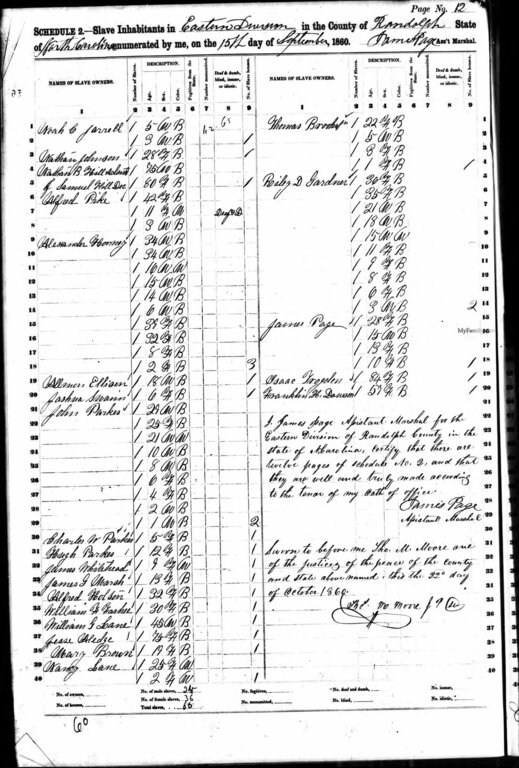 Page No. 12
SCHEDULE 2.—Slave Inhabitants in Eastern Division in the County of Randolph State
of North Carolina enumerated by me, on the 15th day of September, 1860. James Page Ass't Marshal.
NAMES OF SLAVE OWNERS.
Number of Slaves.
DESCRIPTION.
Age.
Sex.
Color.
Fugitives from the State.
Number manumitted.
Deaf & dumb, blind, insane, or idiotic.
No. of Slave houses.
NAMES OF SLAVE OWNERS.
Number of Slaves.
DESCRIPTION.
Age.
Sex.
Color.
Fugitives from the State.
Number manumitted.
Deaf & dumb, blind, insane, or idiotic.
No. of Slave houses.
1 2 3 4 5 6 7 8 9 1 2 3 4 5 6 7 8 9
1 Noah C Jarrell 1 5 M B
2 1 3 M B 1
3 Nathan Johnson 1 28 F B 1
4 Nathan B Hill
5 of Samuel Hill Dec 1 80 F B 1
6 Alfred Pike 1 42 F B
7 1 11 F M
8 1 3 M B 1
9 Alexander 1 34 M B
10 1 34 M B
11 1 16 M M
12 1 15 M B
13 1 14 M B
14 1 6 M B
15 1 35 F B
16 1 32 F B
17 1 8 F B
18 1 2 F B 3
19 Ellison 1 18 M B 1
20 Joshua Swann 1 6 F B 1
21 John Parkes 1 23 M B
22 1 25 F B
23 1 21 M M
24 1 10 M B
25 1 8 M B
26 1 6 F B
27 1 4 F B
28 1 2 M B
29 1 1 M B 2
30 Charles W Parkes 1 5 F B 1
31 Hugh Parkes 1 12 F B 1
32 James Whitehead 1 9 F M 1
33 James G Marsh 1 13 F B 1
34 Alfred Hodson 1 32 F B 1
35 William 1 30 F B 1
36 William G Lane 1 45 M B 1
37 Jesse Hedge 1 75 F B 1
38 Mary Brown 1 19 F B 1
39 Nancy Lane 1 25 F M
40 1 2 F M 1
Thomas 1 22 F B
1 5 M B
1 3 F B
1 1 F B 1
Riley D Gardner 1 36 F B
1 35 F B
1 21 M B
1 18 M B
1 15 M M
1 11 F B
1 9 F B
1 8 F B
1 6 F B
1 3 M B 2
James Page 1 28 F B
1 15 M B
1 13 F B
1 10 F B 1
Isaac 1 54 F B 1
Franklin H 1 57 F B 1
MyFamily
I James Page Assistant Marshal for the
Eastern Division of Randolph County in the
State of N Carolina, certify that there are
twelve pages of schedule No. 2, and that
they are well and truly made according
to the tenor of my oath of office
James Page
Assistant Marshal
Sworn to before me Tho. M. Moore one
of the justices of the peace of the County
and State above named: this the 22nd day
of October 1860
M Moore J P
No. of owners, No. of houses, No. of male slaves, 24 No. of female slaves, 36 Total slaves, 60 No. fugitives, No. manumitted, No. deaf and dumb, No. blind, No. insane, No. idiotic,
60